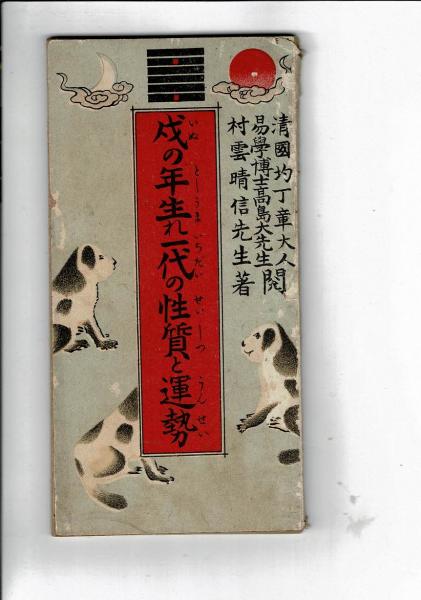 清國圴丁章大人閲
易學博士高島大先生
村雲晴信先生著
戌の年生れ一代の性質と運勢
いぬ としうま いちだい せいしつ うんせい